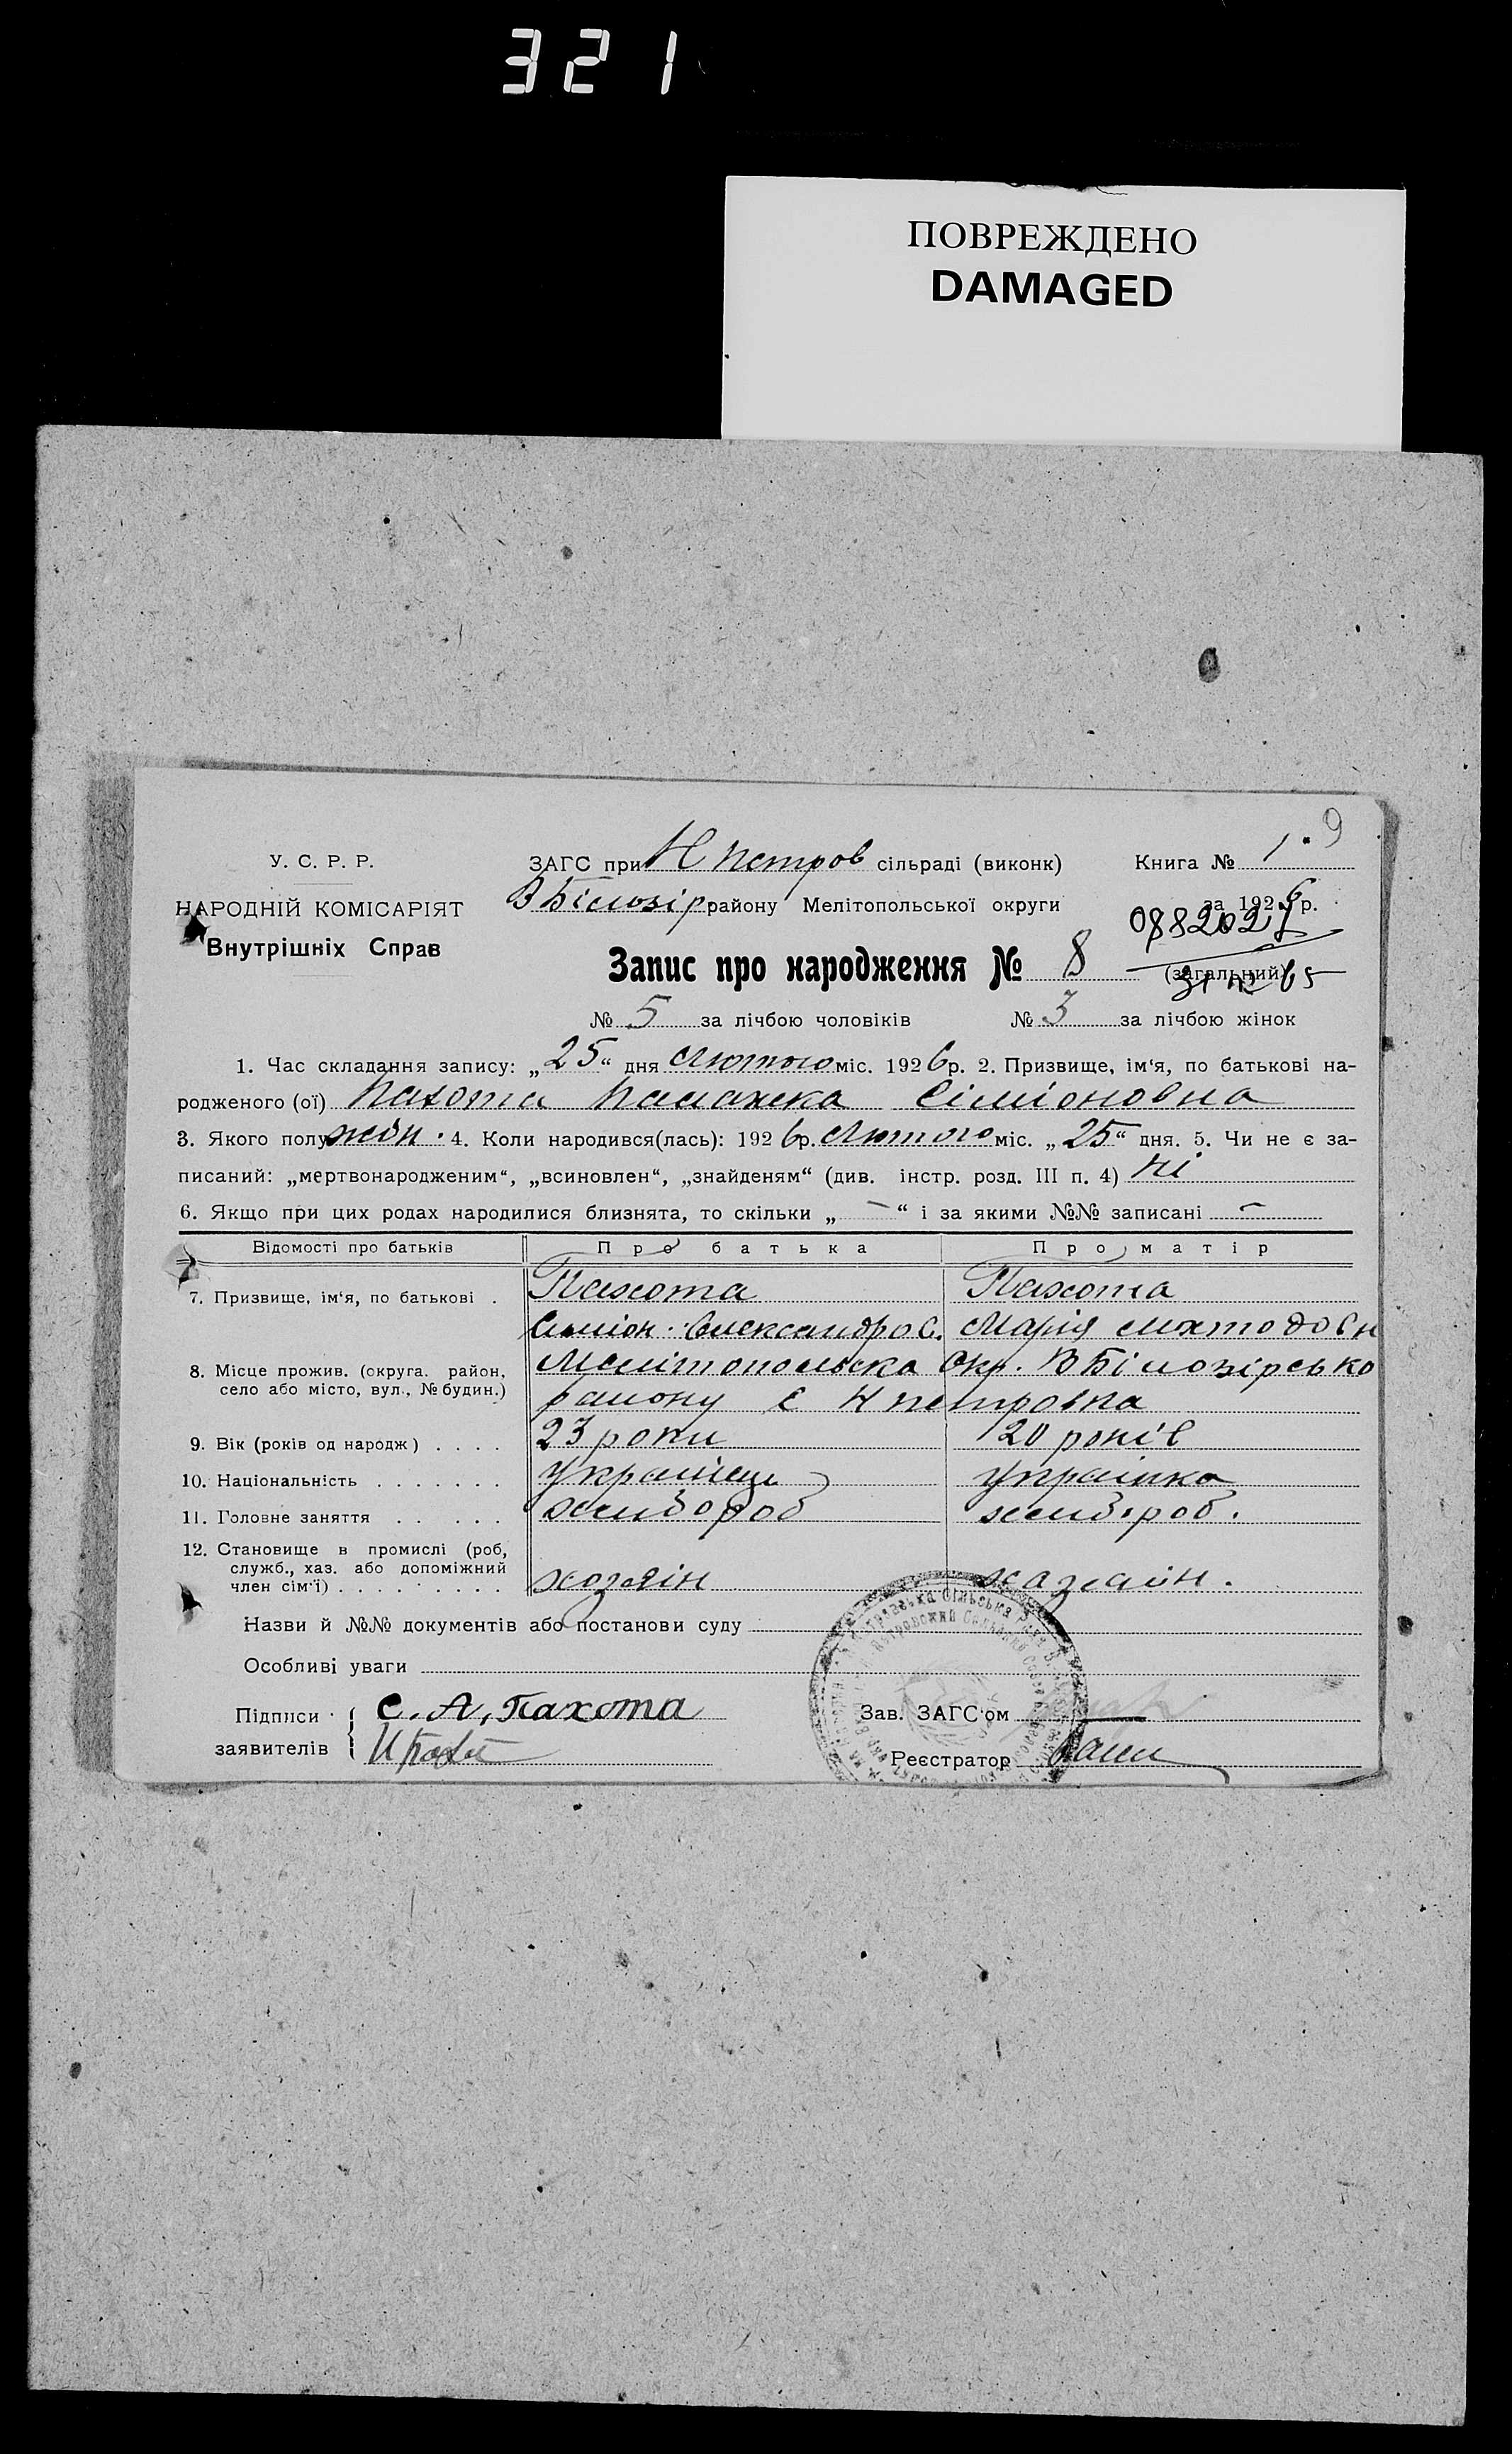 321
ПОВРЕЖДЕНО
DAMAGED
9
У. С. Р. Р.
ЗАГС при Н Петров сільраді (виконк)
Книга № 1
НАРОДНІЙ КОМІСАРІЯТ
В Білозір району Мелітопольської округи
за 1926 р.
Внутрішніх Справ
Запис про народження № 8
(загальний)
№ 5 за лічбою чоловіків № 3 за лічбою жінок
1. Час складання запису: „25“ дня Лютого міс. 1926 р. 2. Призвище, ім‘я, по батькові на-
родженого (ої) Пахота Палажка Сіміоновна
3. Якого полу жін. 4. Коли народився(лась): 1926 р. Лютого міс. „25“ дня. 5. Чи не є за-
писаний: „мертвонародженим“, „всиновлен“, „знайденям“ (див. інстр. розд. III п. 4) Ні
6. Якщо при цих родах народилися близнята, то скільки „ – “ і за якими №№ записані –
Відомості про батьків Про батька Про матір
7. Призвище, ім‘я, по батькові . Пахота Пахота
Симіон Олександров. Марія
8. Місце прожив. (округа. район, Мелітопольска Окр. В Білозірсько
село або місто, вул., № будин.) району с Н петровка
9. Вік (років од народж) . . . . 23 роки 20 років
10. Національність . . . . . . . Українець Українка
11. Головне заняття . . . . . хлібороб хлібороб.
12. Становище в промислі (роб,
служб., хаз. або допоміжний
член сім‘ї) . . . . . . . . . хозяін хазяйн.
Назви й №№ документів або постанови суду
Особливі уваги
Підписи С. А, Пахота
Зав. ЗАГС‘ом
заявителів
Реєстратор